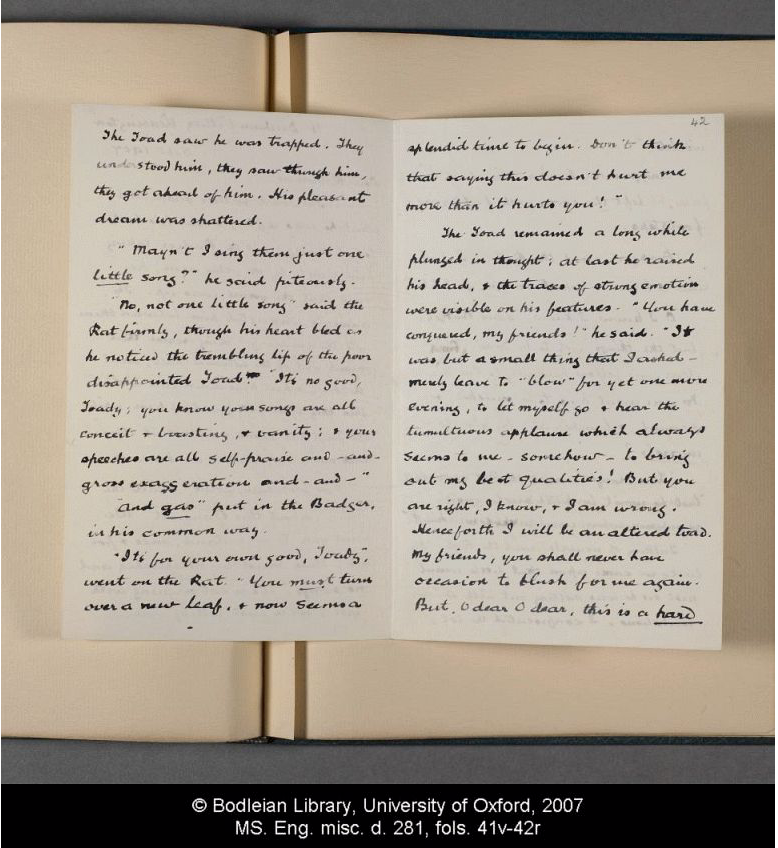 The Toad saw he was trapped. They
understood him, they saw through him,
they got ahead of him. His pleasant
dream was shattered.
"Mayn't I sing them just one
little song?" he said piteously.
"No, not one little song" said the
Rat firmly, though his heart bled as
he noticed the trembling lip of the poor
disappointed Toad. "It's no good,
Toady; you know your songs are all
conceit & boasting, & vanity; & your
speeches are all self-praise and - and -
gross exaggeration and - and - "
"And gas" put in the Badger,
in his common way.
"It's for your own good, Toady",
went on the Rat. "You must turn
over a new leaf, & now seems a
42
splendid time to begin. Don't think
that saying this doesn't hurt me
more than it hurts you!"
The Toad remained a long while
plunged in thought; at last he raised
his head, & the traces of strong emotion
were visible on his features. "You have
conquered, my friends!" he said. "It
was but a small thing that I asked -
merely leave to "blow" for yet one more
evening, to let myself go & hear the
tumultuous applause which always
seems to me - somehow - to bring
out my best qualities! But you
are right, I know, & I am wrong.
Henceforth I will be an altered toad.
My friends, you shall never have
occasion to blush for me again.
But, O dear O dear, this is a hard
© Bodleian Library, University of Oxford, 2007
MS. Eng. misc. d. 281, fols. 41v-42r